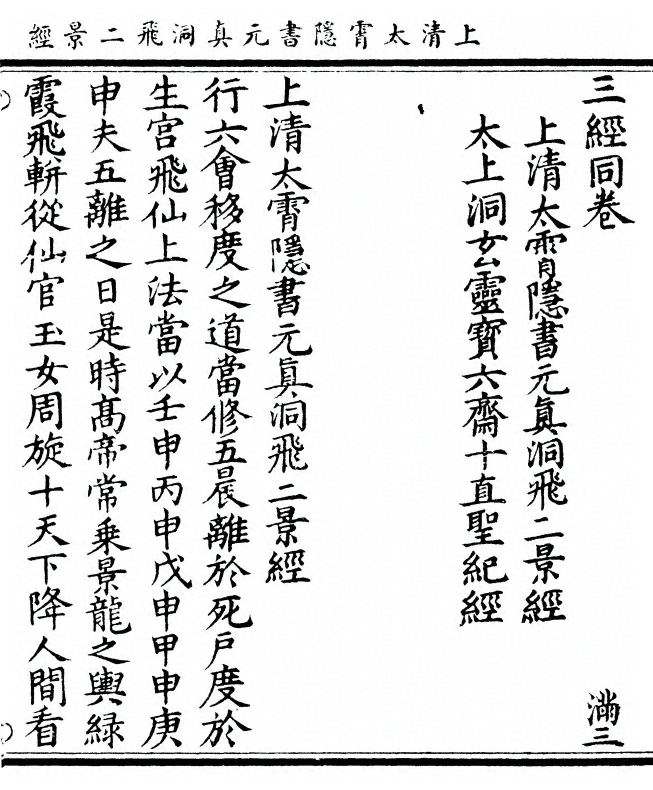 上清太霄隱書元真洞飛二景經
三經同卷
滿三
上清太霄隱書元眞洞飛二景經
太上洞玄靈寶六齋十直聖紀經
上清太霄隱書元眞洞飛二景經
行六會移度之道當修五晨離於死戶度於
生宮飛仙上法當以壬申丙申戊申甲申庚
申夫五離之日是時高帝常乘景龍之輿緑
霞飛軿從仙官玉女周旋十天下降人間看